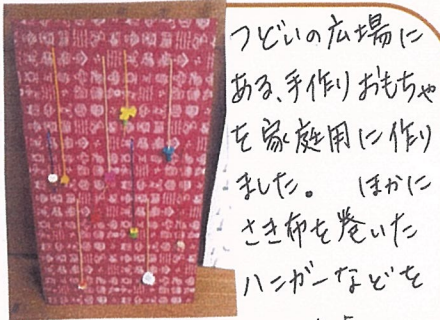 つどいの広場に
ある、手作りおもちゃ
を家庭用に作り
ました。 ほかに
さき布を巻いた
ハンガーなどを